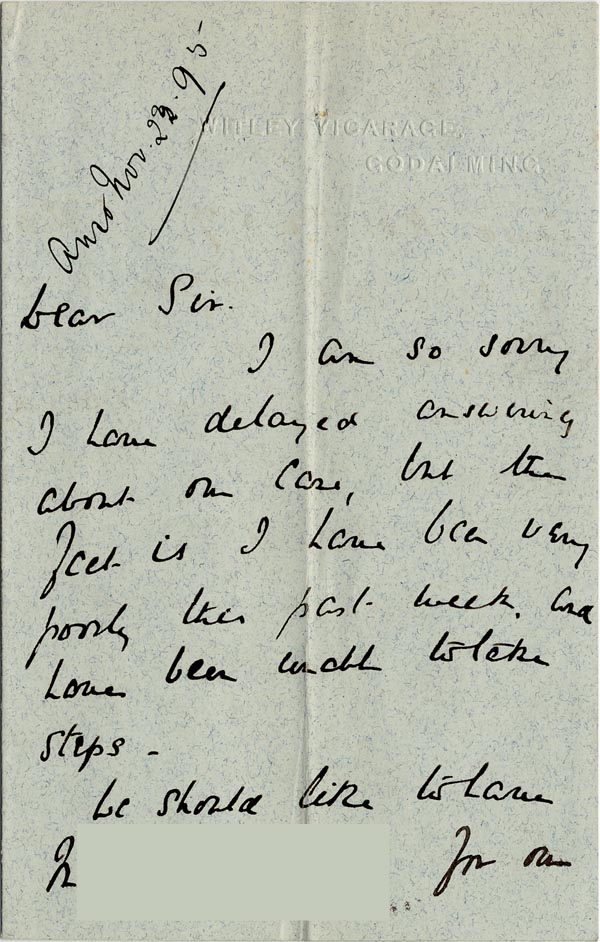 WITLEY VICARAGE,
GODALMING.
Ansd Nov. 23. 95
Dear Sir.
I am so sorry
I have delayed answering
about our Case, but the
fact is I have been very
poorly this past week, and
have been unable to take
steps -
We should like to have
for our